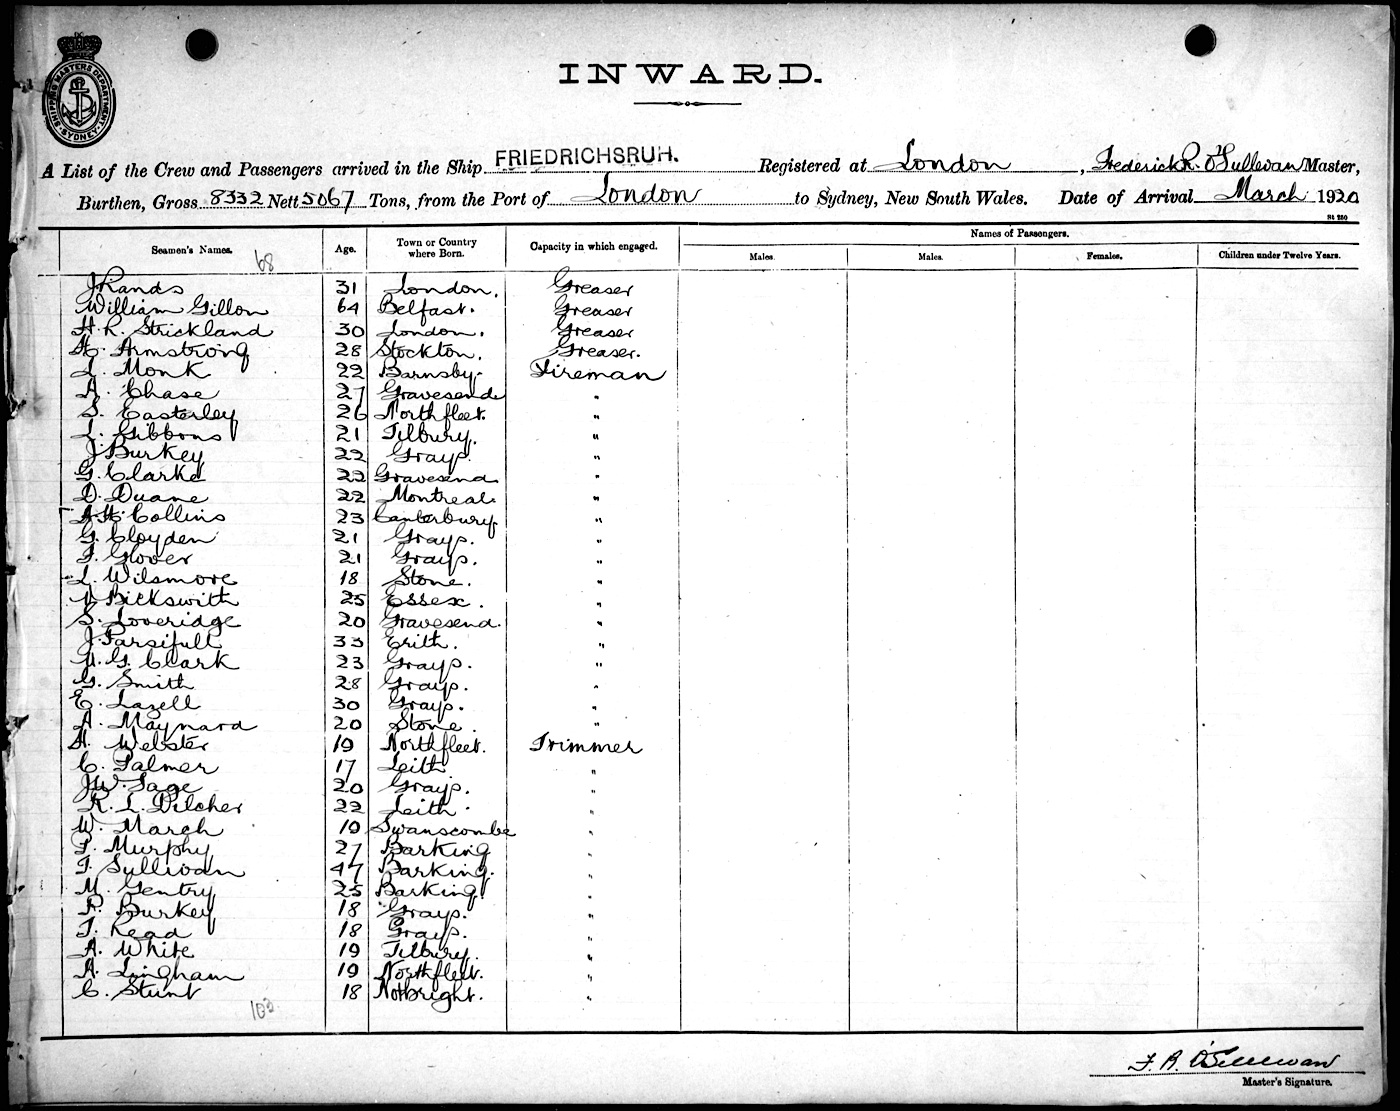 SHIPPING MASTERS DEPARTMENT SYDNEY
INWARD.
A List of the Crew and Passengers arrived in the Ship FRIEDRICHSRUH. Registered at London, Frederick R. O'Sullivan Master,
Burthen, Gross 8332 Nett 5067 Tons, from the Port of London to Sydney, New South Wales. Date of Arrival March 1920
St 230
Seamen's Names. Age. Town or Country where Born. Capacity in which engaged. Names of Passengers.
Males. Males. Females. Children under Twelve Years.
68
J. Rands 31 London. Greaser
William Gillon 64 Belfast. Greaser
H. R. Strickland 30 London. Greaser
H. Armstrong 28 Stockton. Greaser.
L. Monk 22 Barnsby. Fireman
A. Chase 27 Gravesend "
S. Easterley 26 Northfleet. "
L. Gibbons 21 Tilbury. "
J. Burkey 22 Grays. "
G. Clarke 22 Gravesend. "
D. Duane 22 Montreal. "
A. H. Collins 23 Canterbury. "
G. Cloyden 21 Grays. "
F. Glover 21 Grays. "
L. Wilsmore 18 Stone. "
Bickswith 25 Essex. "
S. Loveridge 20 Gravesend. "
J. Parsifull 33 Erith. "
G. Clark 23 Grays. "
G. Smith 28 Grays. "
E. Lazell 30 Grays. "
A. Maynard 20 Stone. "
A. Webster 19 Northfleet. Trimmer
C. Palmer 17 Leith "
J. W. Sage 20 Grays. "
R. L. Pilcher 22 Leith. "
W. March 19 Swanscombe "
P. Murphy 27 Barking "
T. Sullivan 47 Barking. "
M. Gentry 25 Barking. "
R. Burkey 18 Grays. "
T. Read 18 Grays. "
A. White 19 Tilbury. "
A. Lingham 19 Northfleet. "
C. Stunt 18 Notbright. "
102
F. R. O'Sullivan
Master's Signature.